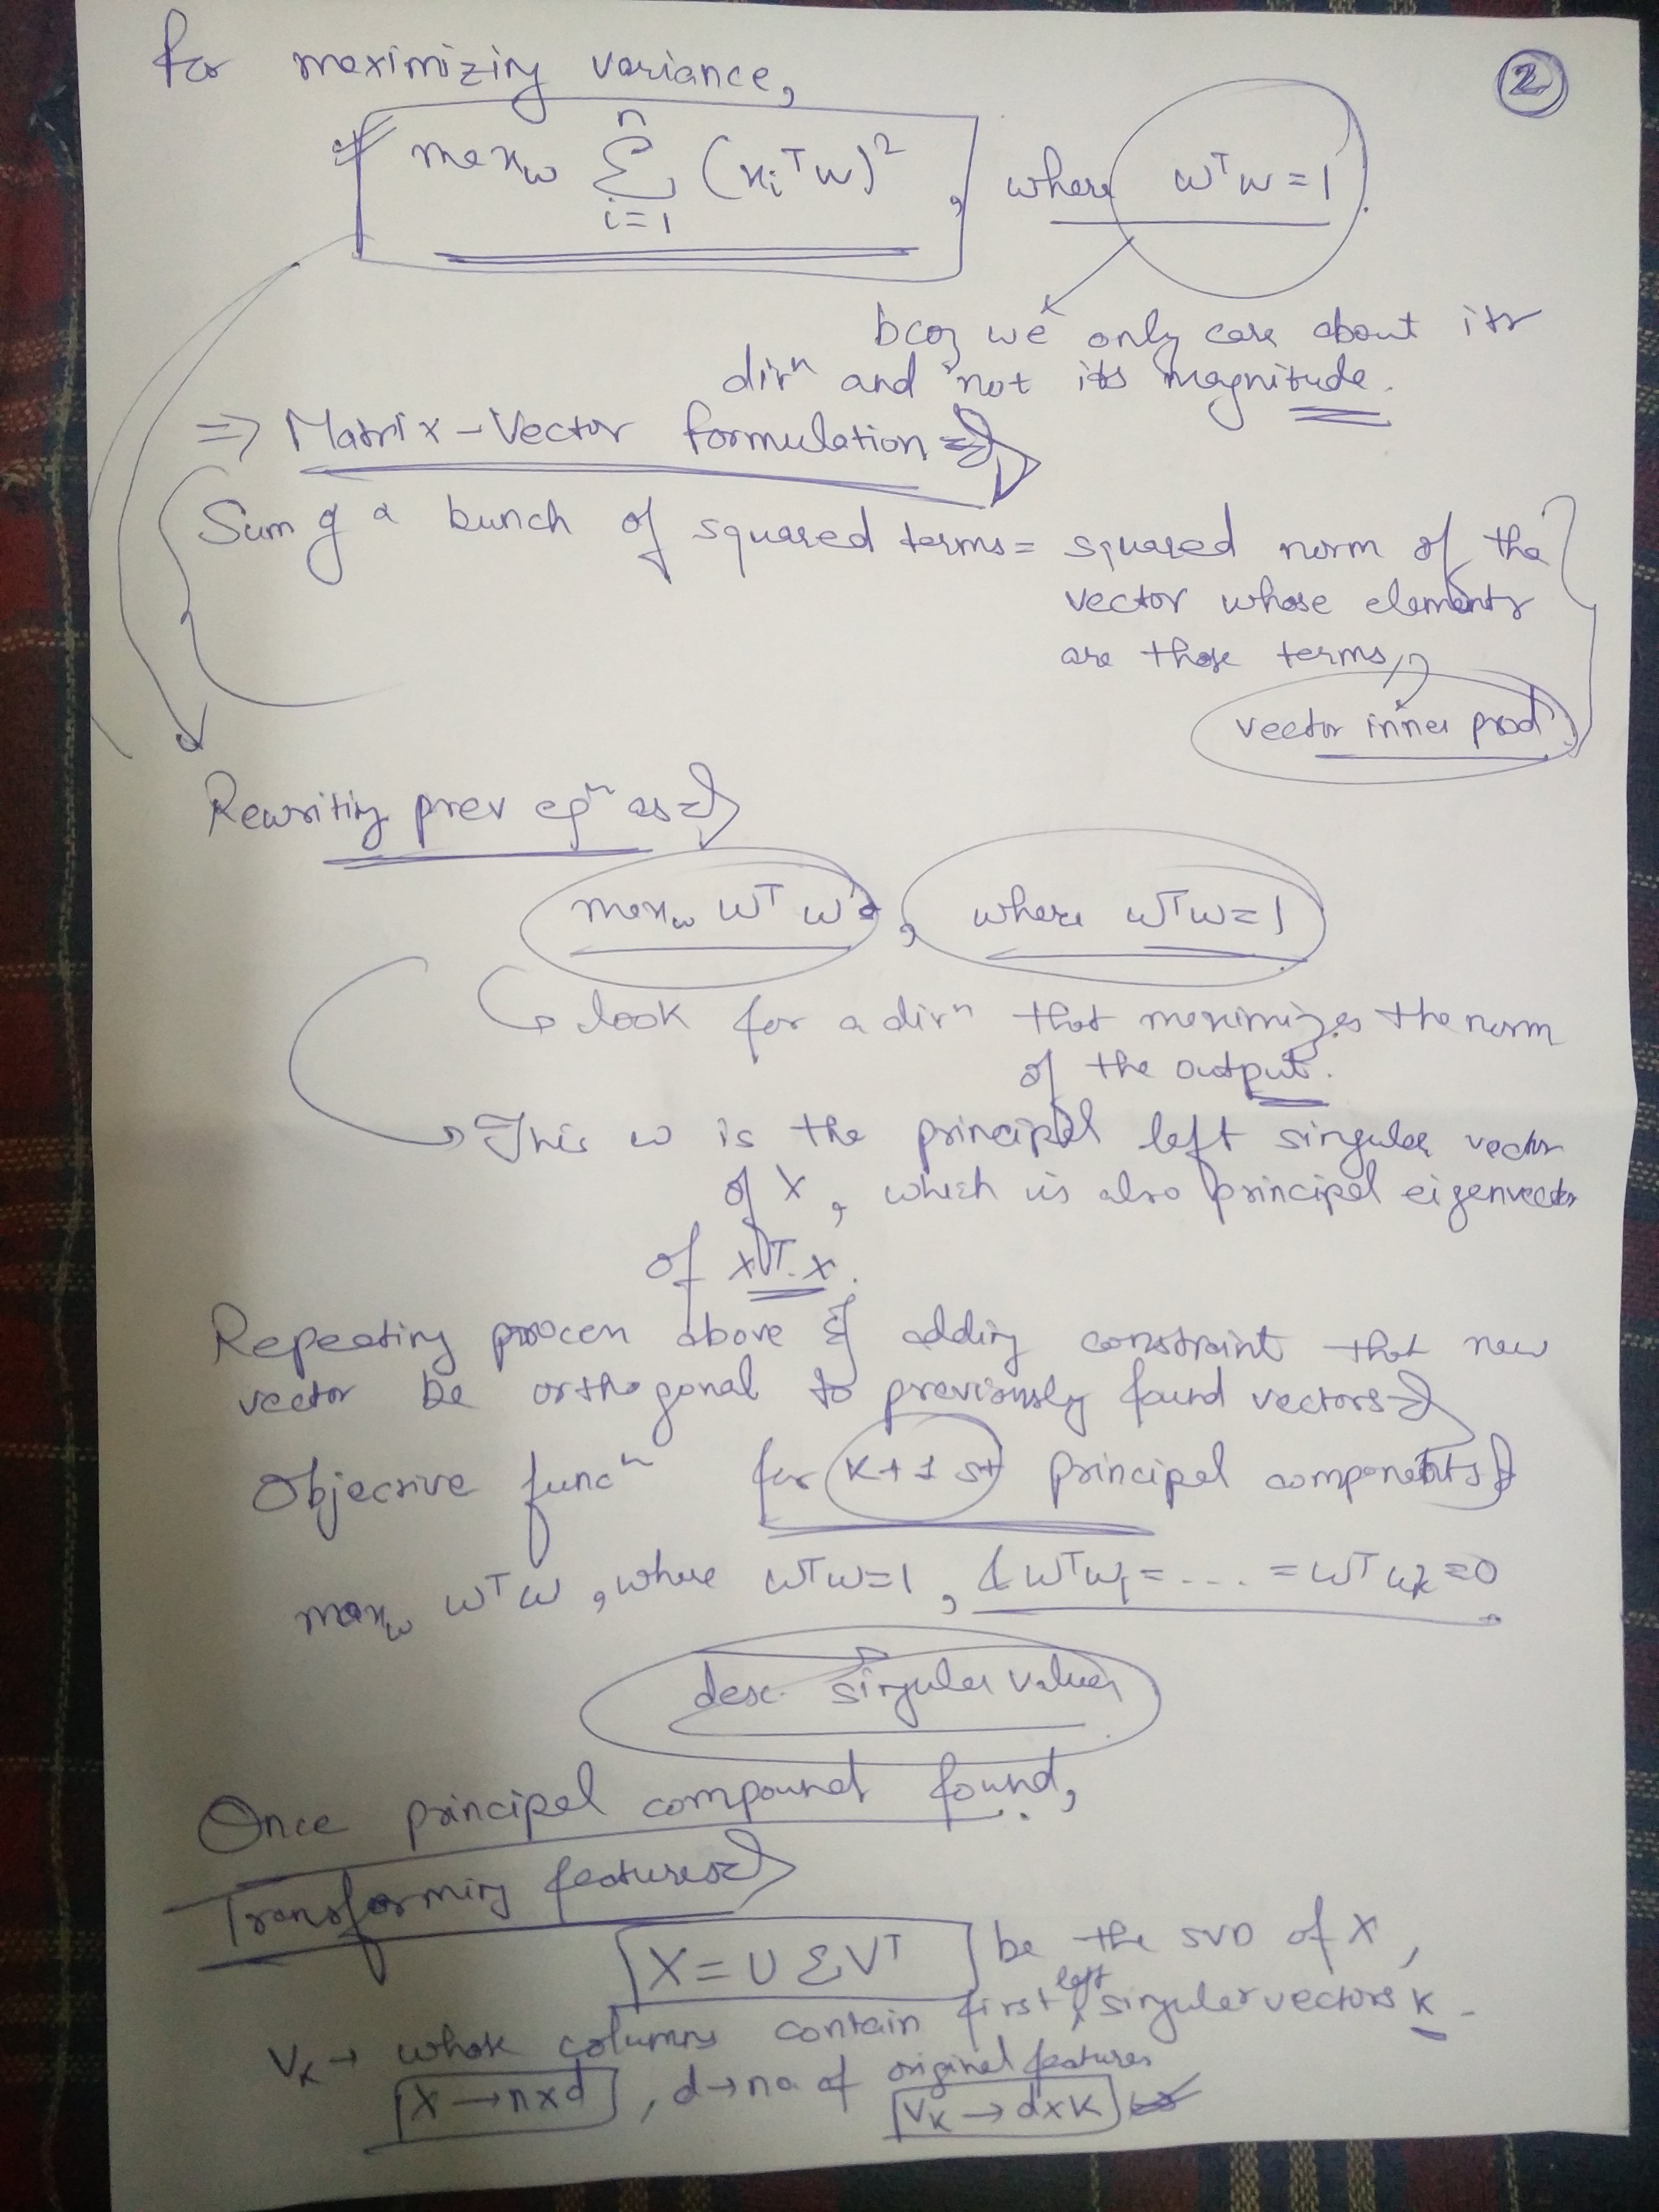 ②
for maximizing variance,
max_w Σ_{i=1}^{n} (x_i^T w)^2, where w^T w = 1.
bcoz we only care about its
dir^n and not its magnitude.
⇒ Matrix-Vector formulation ⇒
Sum of a bunch of squared terms = squared norm of the
vector whose elements
are those terms,
vector inner prod
Rewriting prev eq^n as ⇒
max_w w^T w, where w^T w = 1
look for a dir^n that maximizes the norm
of the output.
→ This w is the principal left singular vector
of X, which is also principal eigenvector
of X^T.X.
Repeating process above & adding constraint that new
vector be orthogonal to previously found vectors ⇒
Objective func^n for K+1 st principal components ⇒
max_w w^T w, where w^T w = 1, & w^T w_1 = .... = w^T w_k = 0
desc. singular values
Once principal compound found,
Transforming features ⇒
X = U Σ V^T be the SVD of X,
V_K → whose columns contain first left singular vectors K.
X → n x d, d → no of original features
V_K → d x K